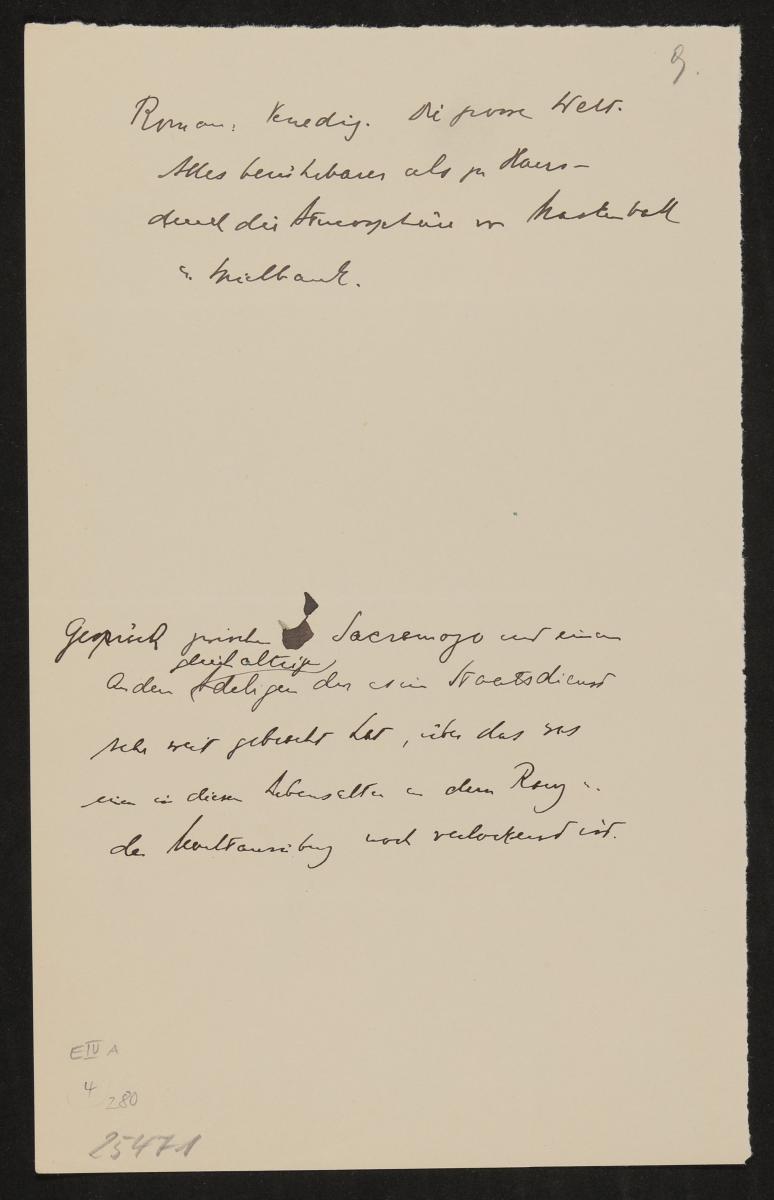 9.
Roman: Venedig. Die grosse Welt.
Alles berührbarer als zu Haus –
durch die Atmosphäre von Maskenball
u. Spielbank.
Gespräch zwischen Sacramozo und einem
gleichaltrigen
andern Adeligen der es im Staatsdienst
sehr weit gebracht hat, über das was
einem in diesem Lebensalter an dem Rang u.
der Machtausübung noch verlockend ist.
E IV A
4
280
25471